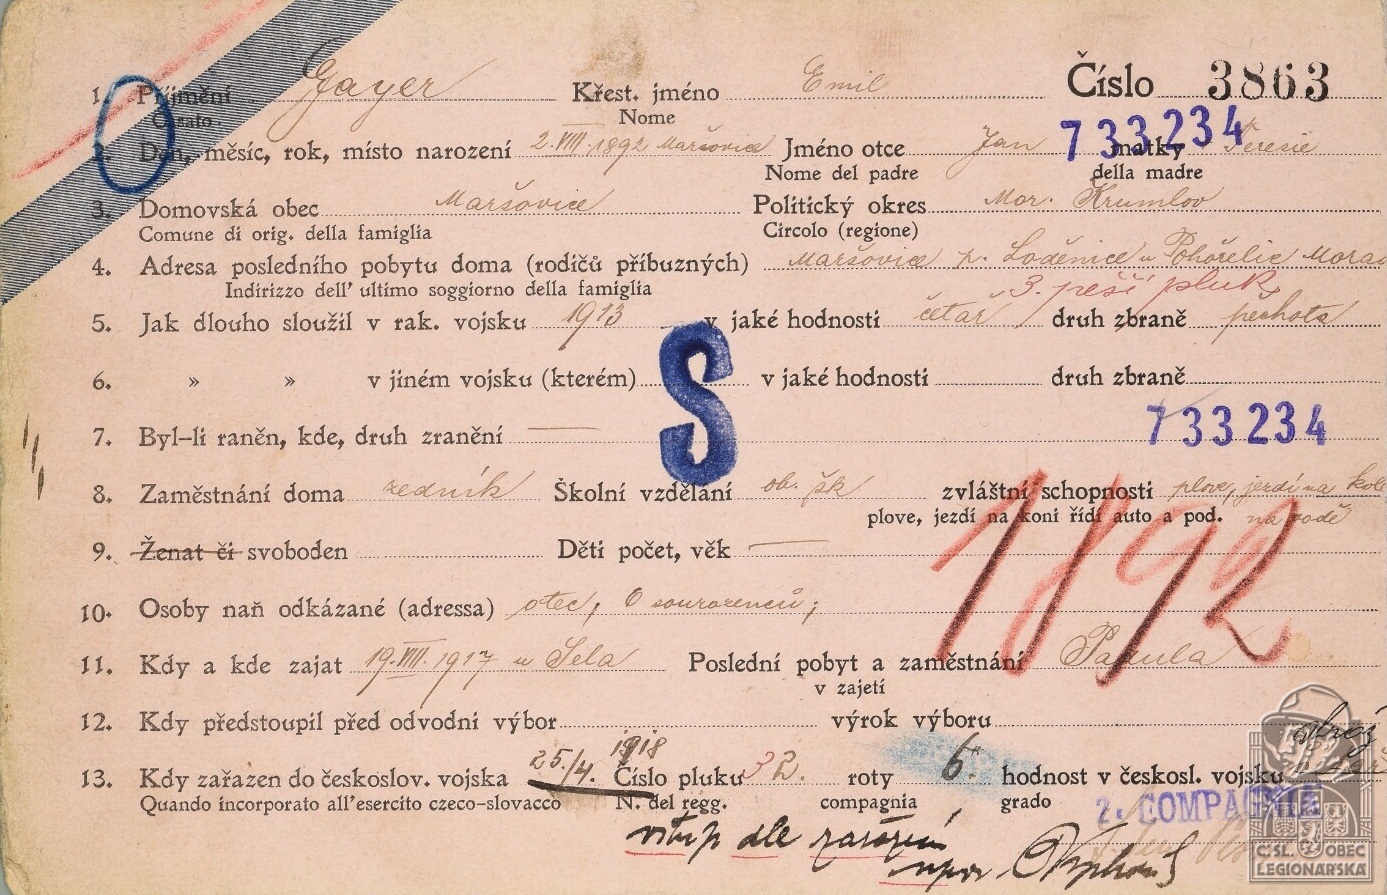 1. Příjmení Gayer Křest. jméno Emil Číslo 3863
Casato Nome
733234
2. Den, měsíc, rok, místo narození 2.VIII.1892 Maršovice Jméno otce Jan matky Teresie
Nome del padre della madre
3. Domovská obec Maršovice Politický okres Mor. Krumlov
Comune di orig. della famiglia Circolo (regione)
4. Adresa posledního pobytu doma (rodičů příbuzných) Maršovice p. Loděnice u Pohořelic Morav
Indirizzo dell' ultimo soggiorno della famiglia 3. pěší pluk
5. Jak dlouho sloužil v rak. vojsku 1913 v jaké hodnosti četař druh zbraně pěchota
6. » » v jiném vojsku (kterém) v jaké hodnosti druh zbraně
S
733234
7. Byl-li raněn, kde, druh zranění —
8. Zaměstnání doma zedník Školní vzdělání ob. šk zvláštní schopnosti plove, jezdí na kole
plove, jezdí na koni řídí auto a pod. na vodě
1892
9. Ženat či svoboden Děti počet, věk —
10. Osoby naň odkázané (adressa) otec, 6 sourozenců;
11. Kdy a kde zajat 19.VIII.1917 u Sela Poslední pobyt a zaměstnání Padula
v zajetí
12. Kdy předstoupil před odvodní výbor výrok výboru
13. Kdy zařazen do českoslov. vojska 25./4. 1918 Číslo pluku 32. roty 6. hodnost v českosl. vojsku
Quando incorporato all'esercito czeco-slovacco N. del regg. compagnia grado
2. COMPAGNIA
vstup dle zařazení
Č.SL. OBEC
LEGIONÁŘSKÁ